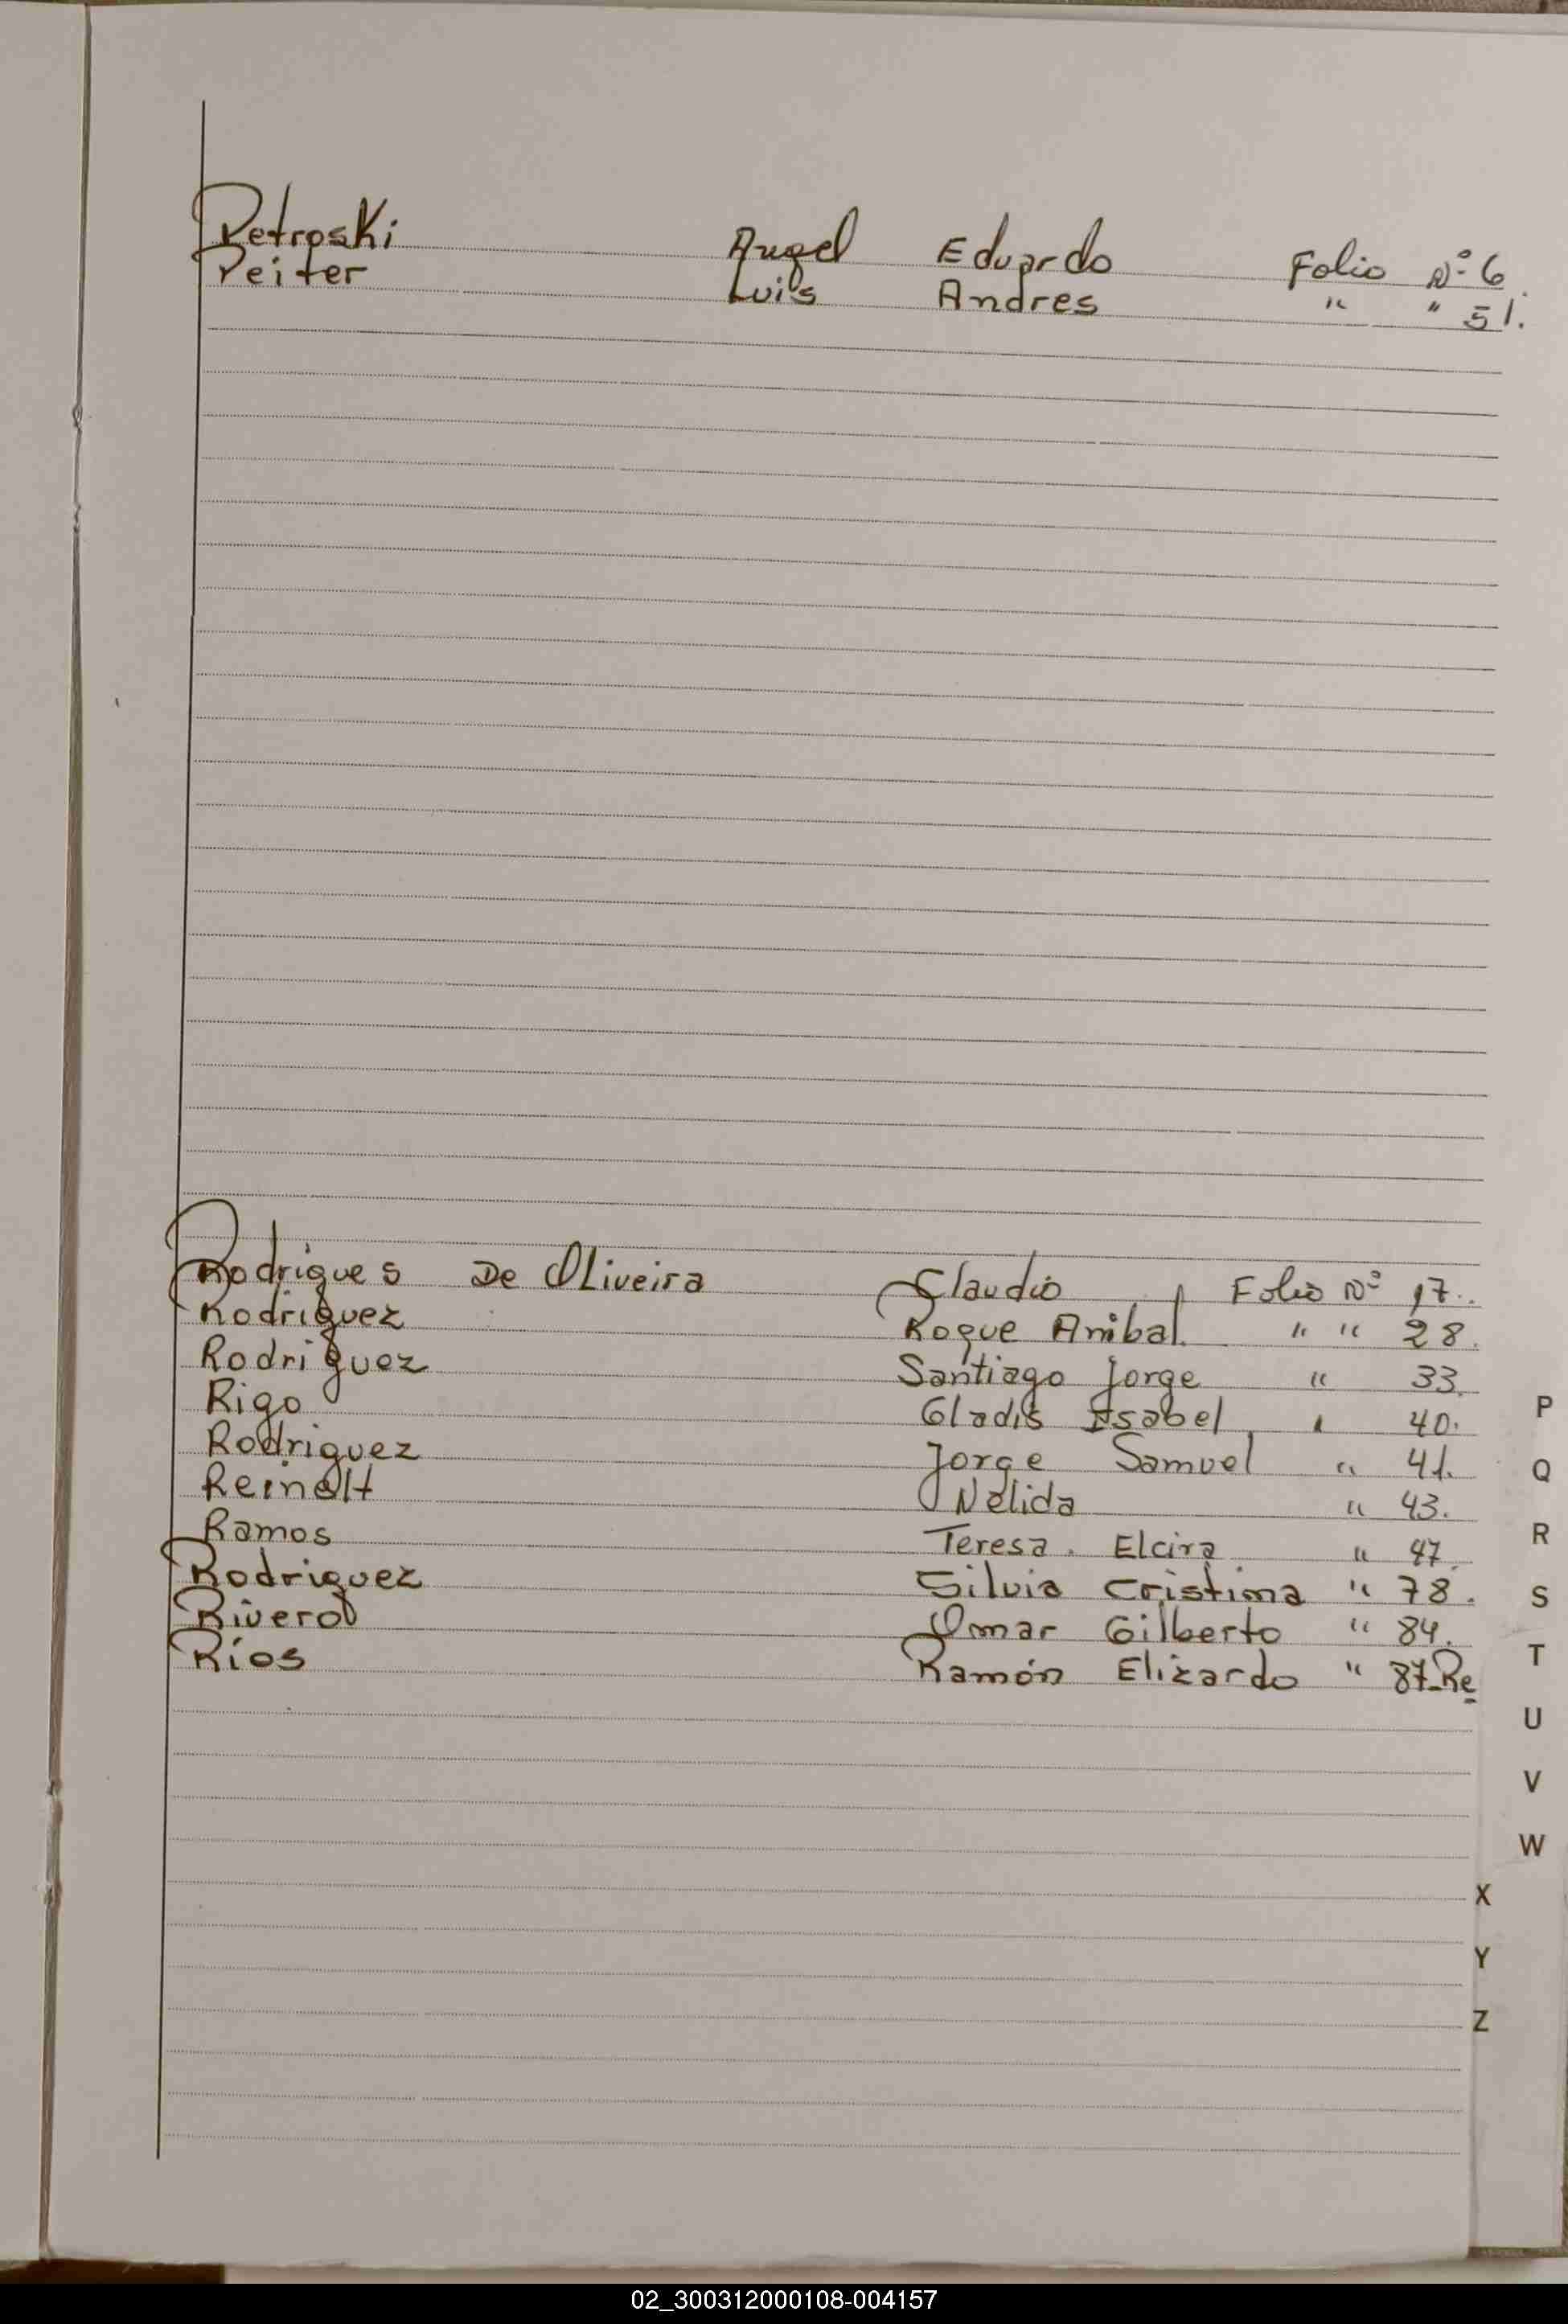 Petroski Angel Eduardo Folio Nº 6
Peiter Luis Andres " " 51.
Rodrigues De Oliveira Claudio Folio Nº 17.
Rodriguez Roque Anibal. " " 28.
Rodriguez Santiago Jorge " 33.
Rigo Gladis Isabel " 40.
Rodriguez Jorge Samuel " 41.
Reinalt Nelida " 43.
Ramos Teresa. Elcira " 47.
Rodriguez Silvia Cristina " 78.
Rivero Omar Gilberto " 84.
Ríos Ramón Elizardo " 87-Re
P
Q
R
S
T
U
V
W
X
Y
Z
02_300312000108-004157